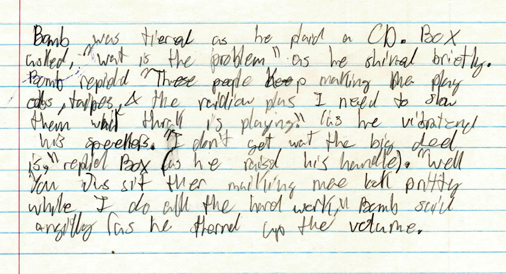 Bomb was tierad as he plaid a CD. Box
asked, "wat is the problem" as he shived briefly.
Bomb repidd "These people keep making me play
cds, taipes, & the raidiow plus I need to show
them wat thrak is playing." (as he vibratend
his speekers. "I don't get wat the big deel
is," repid Box (as he raisd his handle). "Well
You jus sit ther maiking mee look pritty
while I do all the hard work," Bomb said
angilly (as he thernd up the volume.